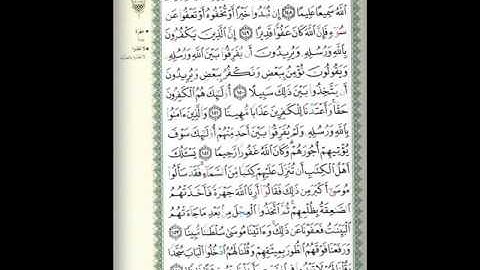 اللَّهُ سَمِيعًا عَلِيمًا ﴿١٤٨﴾ إِن تُبْدُوا۟ خَيْرًا أَوْ تُخْفُوهُ أَوْ تَعْفُوا۟ عَن
سُوٓءٍ فَإِنَّ اللَّهَ كَانَ عَفُوًّا قَدِيرًا ﴿١٤٩﴾ إِنَّ الَّذِينَ يَكْفُرُونَ
بِاللَّهِ وَرُسُلِهِۦ وَيُرِيدُونَ أَن يُفَرِّقُوا۟ بَيْنَ اللَّهِ وَرُسُلِهِۦ
وَيَقُولُونَ نُؤْمِنُ بِبَعْضٍ وَنَكْفُرُ بِبَعْضٍ وَيُرِيدُونَ
أَن يَتَّخِذُوا۟ بَيْنَ ذَٰلِكَ سَبِيلًا ﴿١٥٠﴾ أُو۟لَٰٓئِكَ هُمُ الْكَٰفِرُونَ
حَقًّا وَأَعْتَدْنَا لِلْكَٰفِرِينَ عَذَابًا مُّهِينًا ﴿١٥١﴾ وَالَّذِينَ ءَامَنُوا۟
بِاللَّهِ وَرُسُلِهِۦ وَلَمْ يُفَرِّقُوا۟ بَيْنَ أَحَدٍ مِّنْهُمْ أُو۟لَٰٓئِكَ سَوْفَ
يُؤْتِيهِمْ أُجُورَهُمْ وَكَانَ اللَّهُ غَفُورًا رَّحِيمًا ﴿١٥٢﴾ يَسْـَٔلُكَ
أَهْلُ الْكِتَٰبِ أَن تُنَزِّلَ عَلَيْهِمْ كِتَٰبًا مِّنَ السَّمَآءِ فَقَدْ سَأَلُوا۟
مُوسَىٰٓ أَكْبَرَ مِن ذَٰلِكَ فَقَالُوٓا۟ أَرِنَا اللَّهَ جَهْرَةً فَأَخَذَتْهُمُ
الصَّٰعِقَةُ بِظُلْمِهِمْ ثُمَّ اتَّخَذُوا۟ الْعِجْلَ مِنۢ بَعْدِ مَا جَآءَتْهُمُ
الْبَيِّنَٰتُ فَعَفَوْنَا عَن ذَٰلِكَ وَءَاتَيْنَا مُوسَىٰ سُلْطَٰنًا مُّبِينًا ﴿١٥٣﴾
وَرَفَعْنَا فَوْقَهُمُ الطُّورَ بِمِيثَٰقِهِمْ وَقُلْنَا لَهُمُ ادْخُلُوا۟ الْبَابَ سُجَّدًا